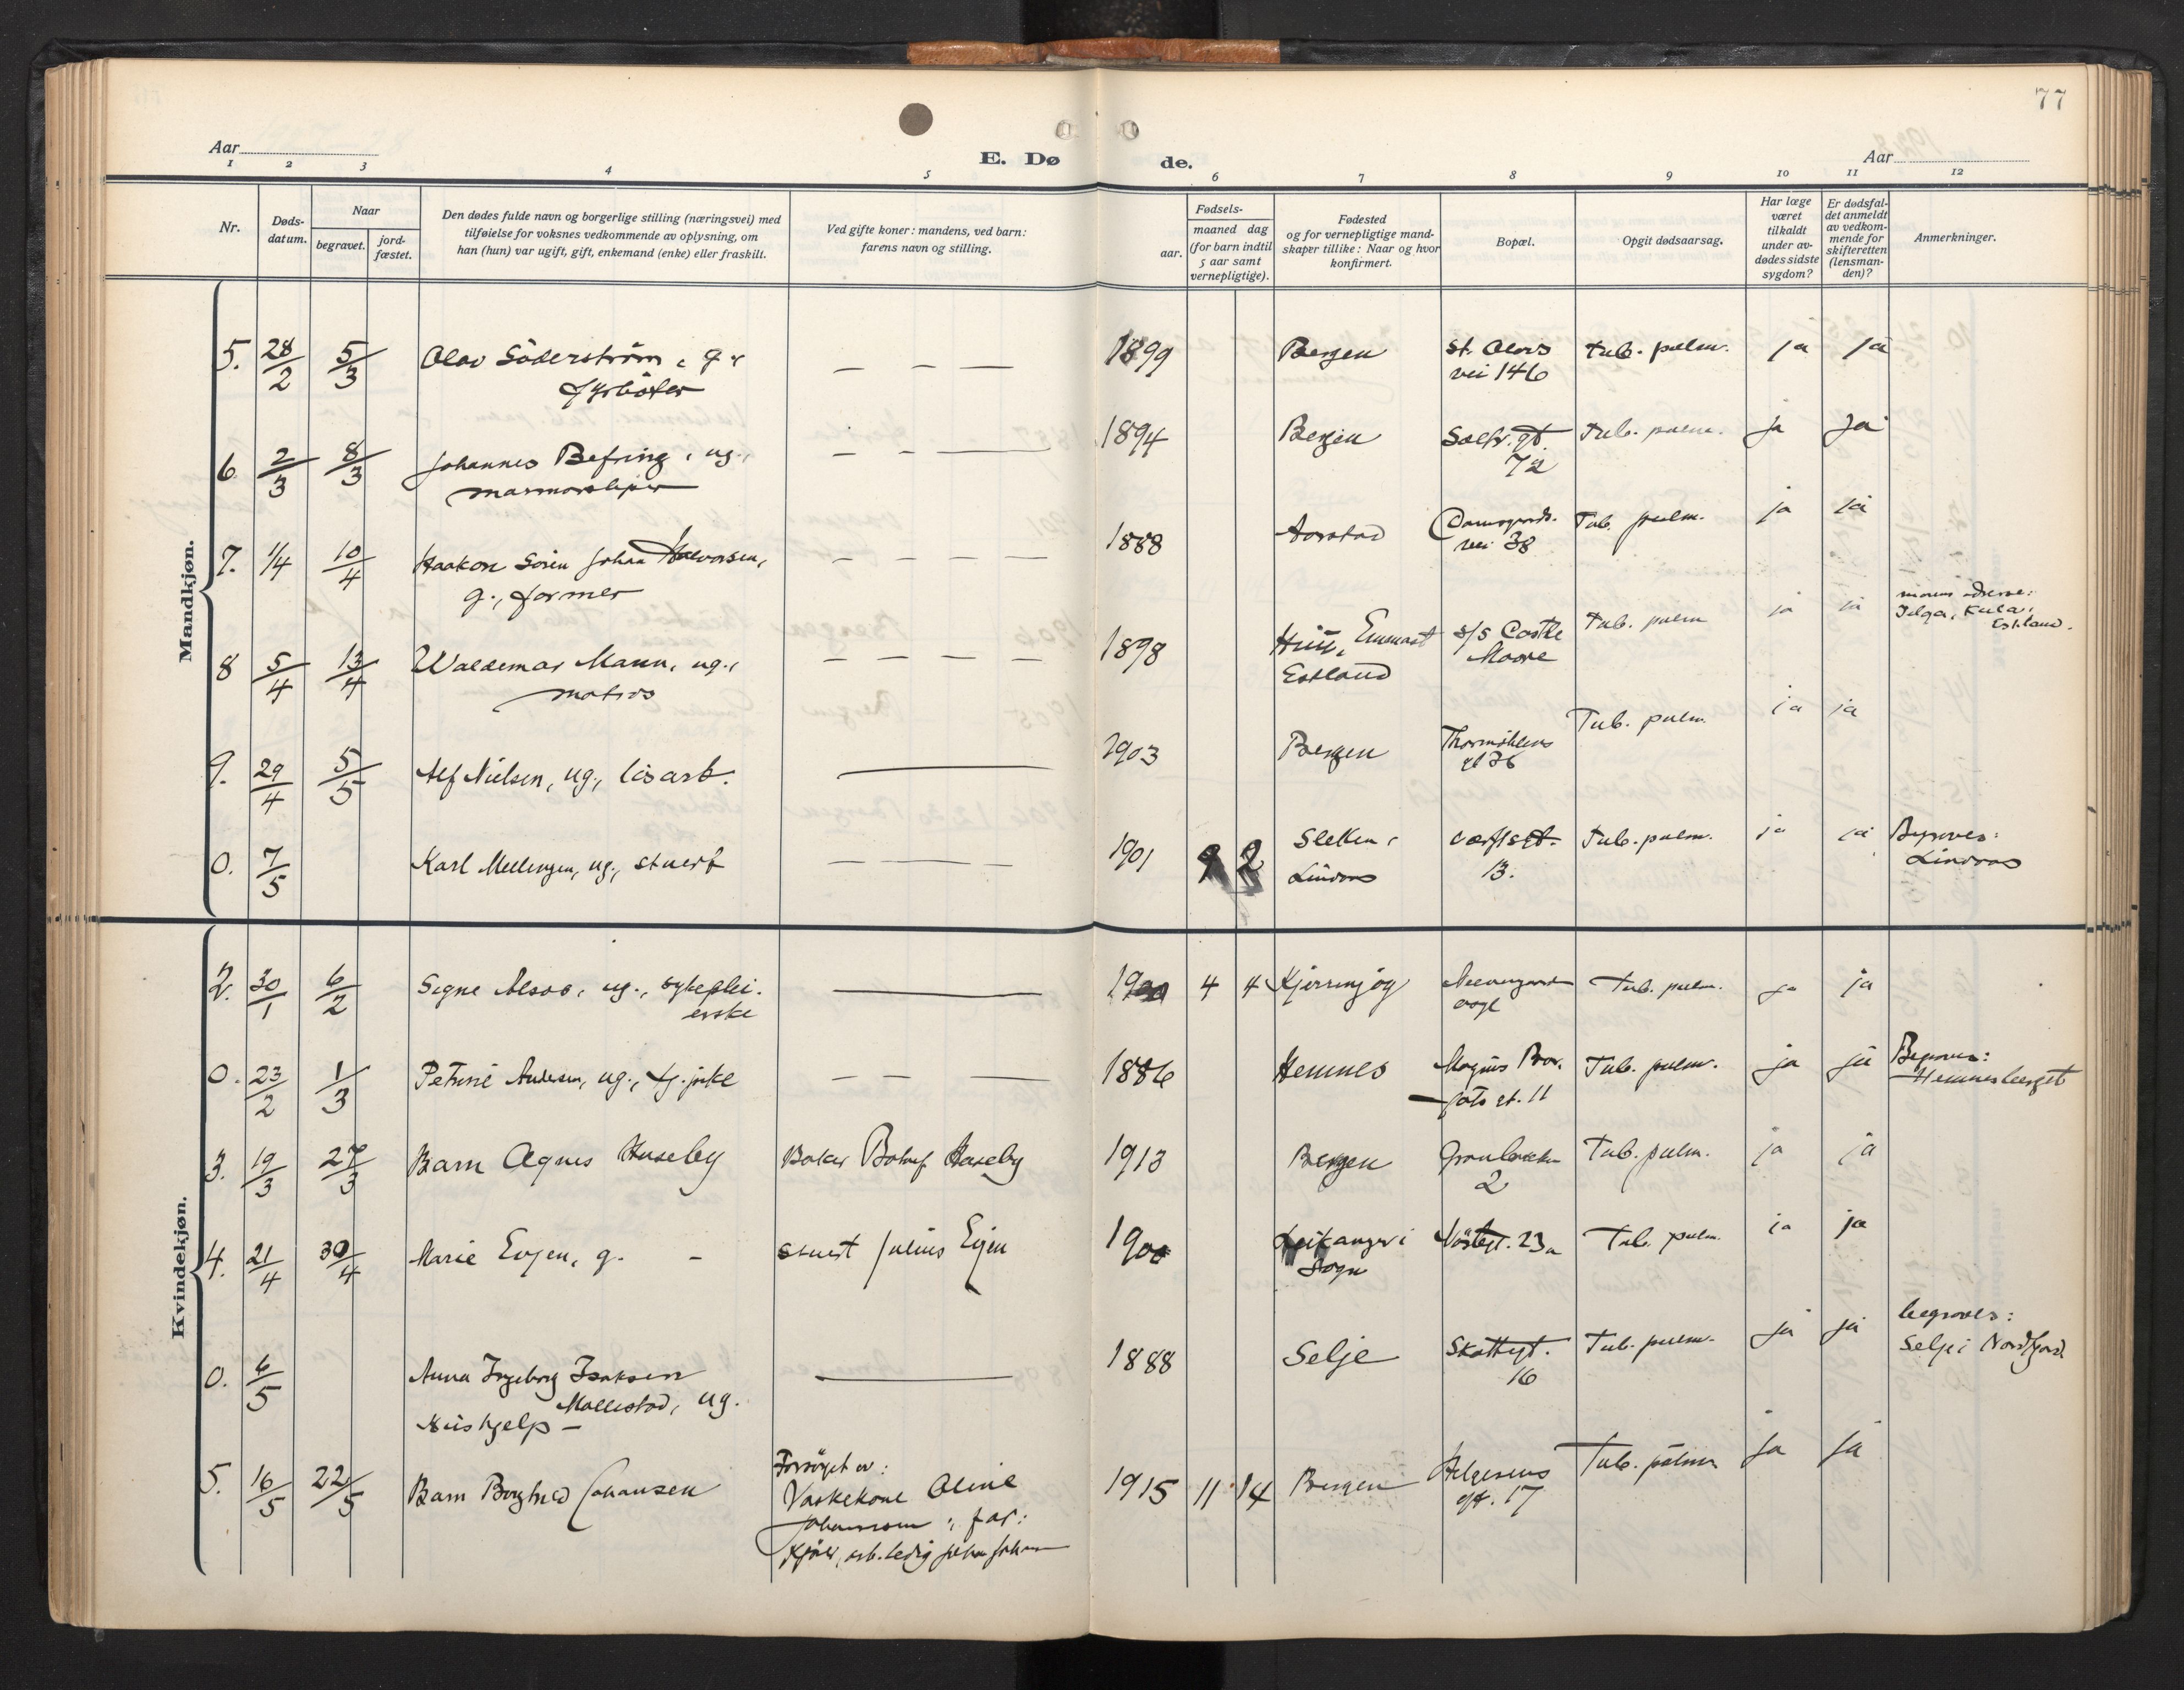 77
Aar
E. Dø
de.
Aar
1 2 3 4 5 6 7 8 9 10 11 12
Nr.
Døds-
datum.
Naar
begravet.
jord-
fæstet.
Den dødes fulde navn og borgerlige stilling (næringsvei) med
tilføielse for voksnes vedkommende av oplysning, om
han (hun) var ugift, gift, enkemand (enke) eller fraskilt.
Ved gifte koner: mandens, ved barn:
farens navn og stilling.
Fødsels-
aar.
maaned dag
(for barn indtil
5 aar samt
vernepligtige).
Fødested
og for vernepligtige mand-
skaper tillike: Naar og hvor
konfirmert.
Bopæl.
Opgit dødsaarsag.
Har læge
været
tilkaldt
under av-
dødes sidste
sygdom?
Er dødsfal-
det anmeldt
av vedkom-
mende for
skifteretten
(lensman-
den)?
Anmerkninger.
Mandkjøn.
5. 28/2 5/3 Olav Söderström, g., — — — 1899 Bergen St. Olavs Tub. pulm. ja ja
fyrböter vei 146
6 2/3 8/3 Johannes Befring, ug., — - — 1894 Bergen Sælh.gt. Tub. pulm. ja ja
marmorsliper 72
7. 1/4 10/4 Haakon Sörin Johan Halvorsen, — — — — 1888 Aarstad Damsgaards- Tub. pulm. ja ja
g., former vei 38
8 5/4 13/4 Waldemar Mann, ug., — — — — 1898 Hiiu, Emmast s/s Castle Tub. pulm ja ja morens adresse:
matros Estland Moore Jelga, Kula,
Estland.
9. 29/4 5/5 Alf Nielsen, ug., lösarb. — 1903 Bergen Thormöhlens Tub. pulm. ja ja
gt 36
0. 7/5 Karl Mellingen, ug., stuert — — — 1901 2 Sletten i Tub. pulm. ja ja Begraves:
Lindaas 13. Lindaas
Kvindekjøn.
2. 30/1 6/2 Signe ug., sykeplei- — 4 4 Tub. pulm. ja ja
erske
0. 23/2 1/3 Petrine Andersen, ug., — — — 1886 Hemnes Magnus Bar- Tub. pulm. ja ja Begraves:
fots gt. 11 Hemnesberget
3. 19/3 27/3 Barn Agnes Huseby Baker Huseby 1913 Bergen Tub. pulm. ja ja
2
4. 21/4 30/4 Marie Eijen, g. - stuert Julius Eijen 1900 Leikanger i Nöstegt. 23a Tub. pulm. ja ja
Sogn
0. 6/5 Anna Ingeborg Isaksen — 1888 Selje Skottegt. Tub. pulm. ja ja begraves:
Mallestad, ug. 16 Selje i Nordfjord
hushjelp —
5. 16/5 22/5 Barn Borghild Johansen Forsörget av: 1915 11 14 Bergen Helgesens Tub. pulm. ja ja
Vaskekone Oline gt. 17
Johannessen, far:
arb.ledig Johan